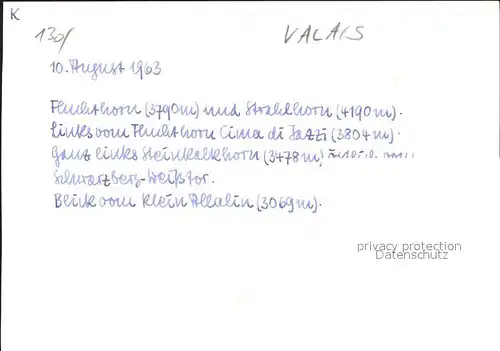 K
130/
VALAIS
10. August 1963
Fluchthorn (3790m) und Strahlhorn (4190m).
Links vom Fluchthorn Cima di Jazzi (3804m).
Ganz links Steinkalkhorn (3478m)
Schwarzberg-Weißtor.
Blick vom Klein Allalin (3069m).
privacy protection
Datenschutz